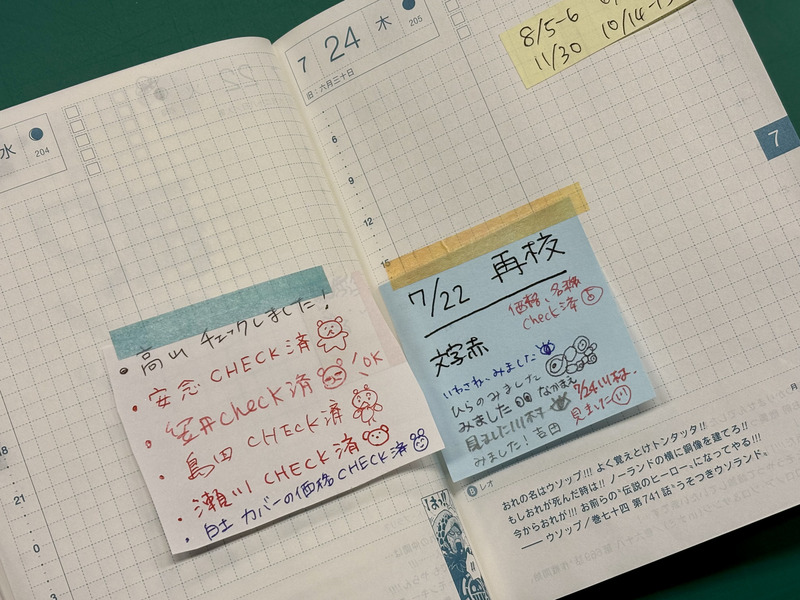 水
204
18
21
0
3
7 24 木
205
旧・六月三十日
6
9
12
15
8/5-6
11/30
10/14-15
7
・高山 チェックしました!
・安念 CHECK済
OK
・安井 check済
・島田 CHECK済
・瀬川 CHECK済
・白土 カバーの価格CHECK済
7/22 再校
価格、名称
check済
文字赤
いわさねーみました
ひらのみました
みました なかまえ
見ました 川村
みました!吉田
7/24川村
見ました
月
レオ
おれの名はウソップ!!! よく覚えとけトンタッタ!!
もしおれが死んだ時は!! ノーランドの横に銅像を建てろ!!
今からおれが!!! お前らの“伝説のヒーロー”になってやる!!!
── ウソップ/巻七十四 第741話“うそつきウソランド”
はっ!!